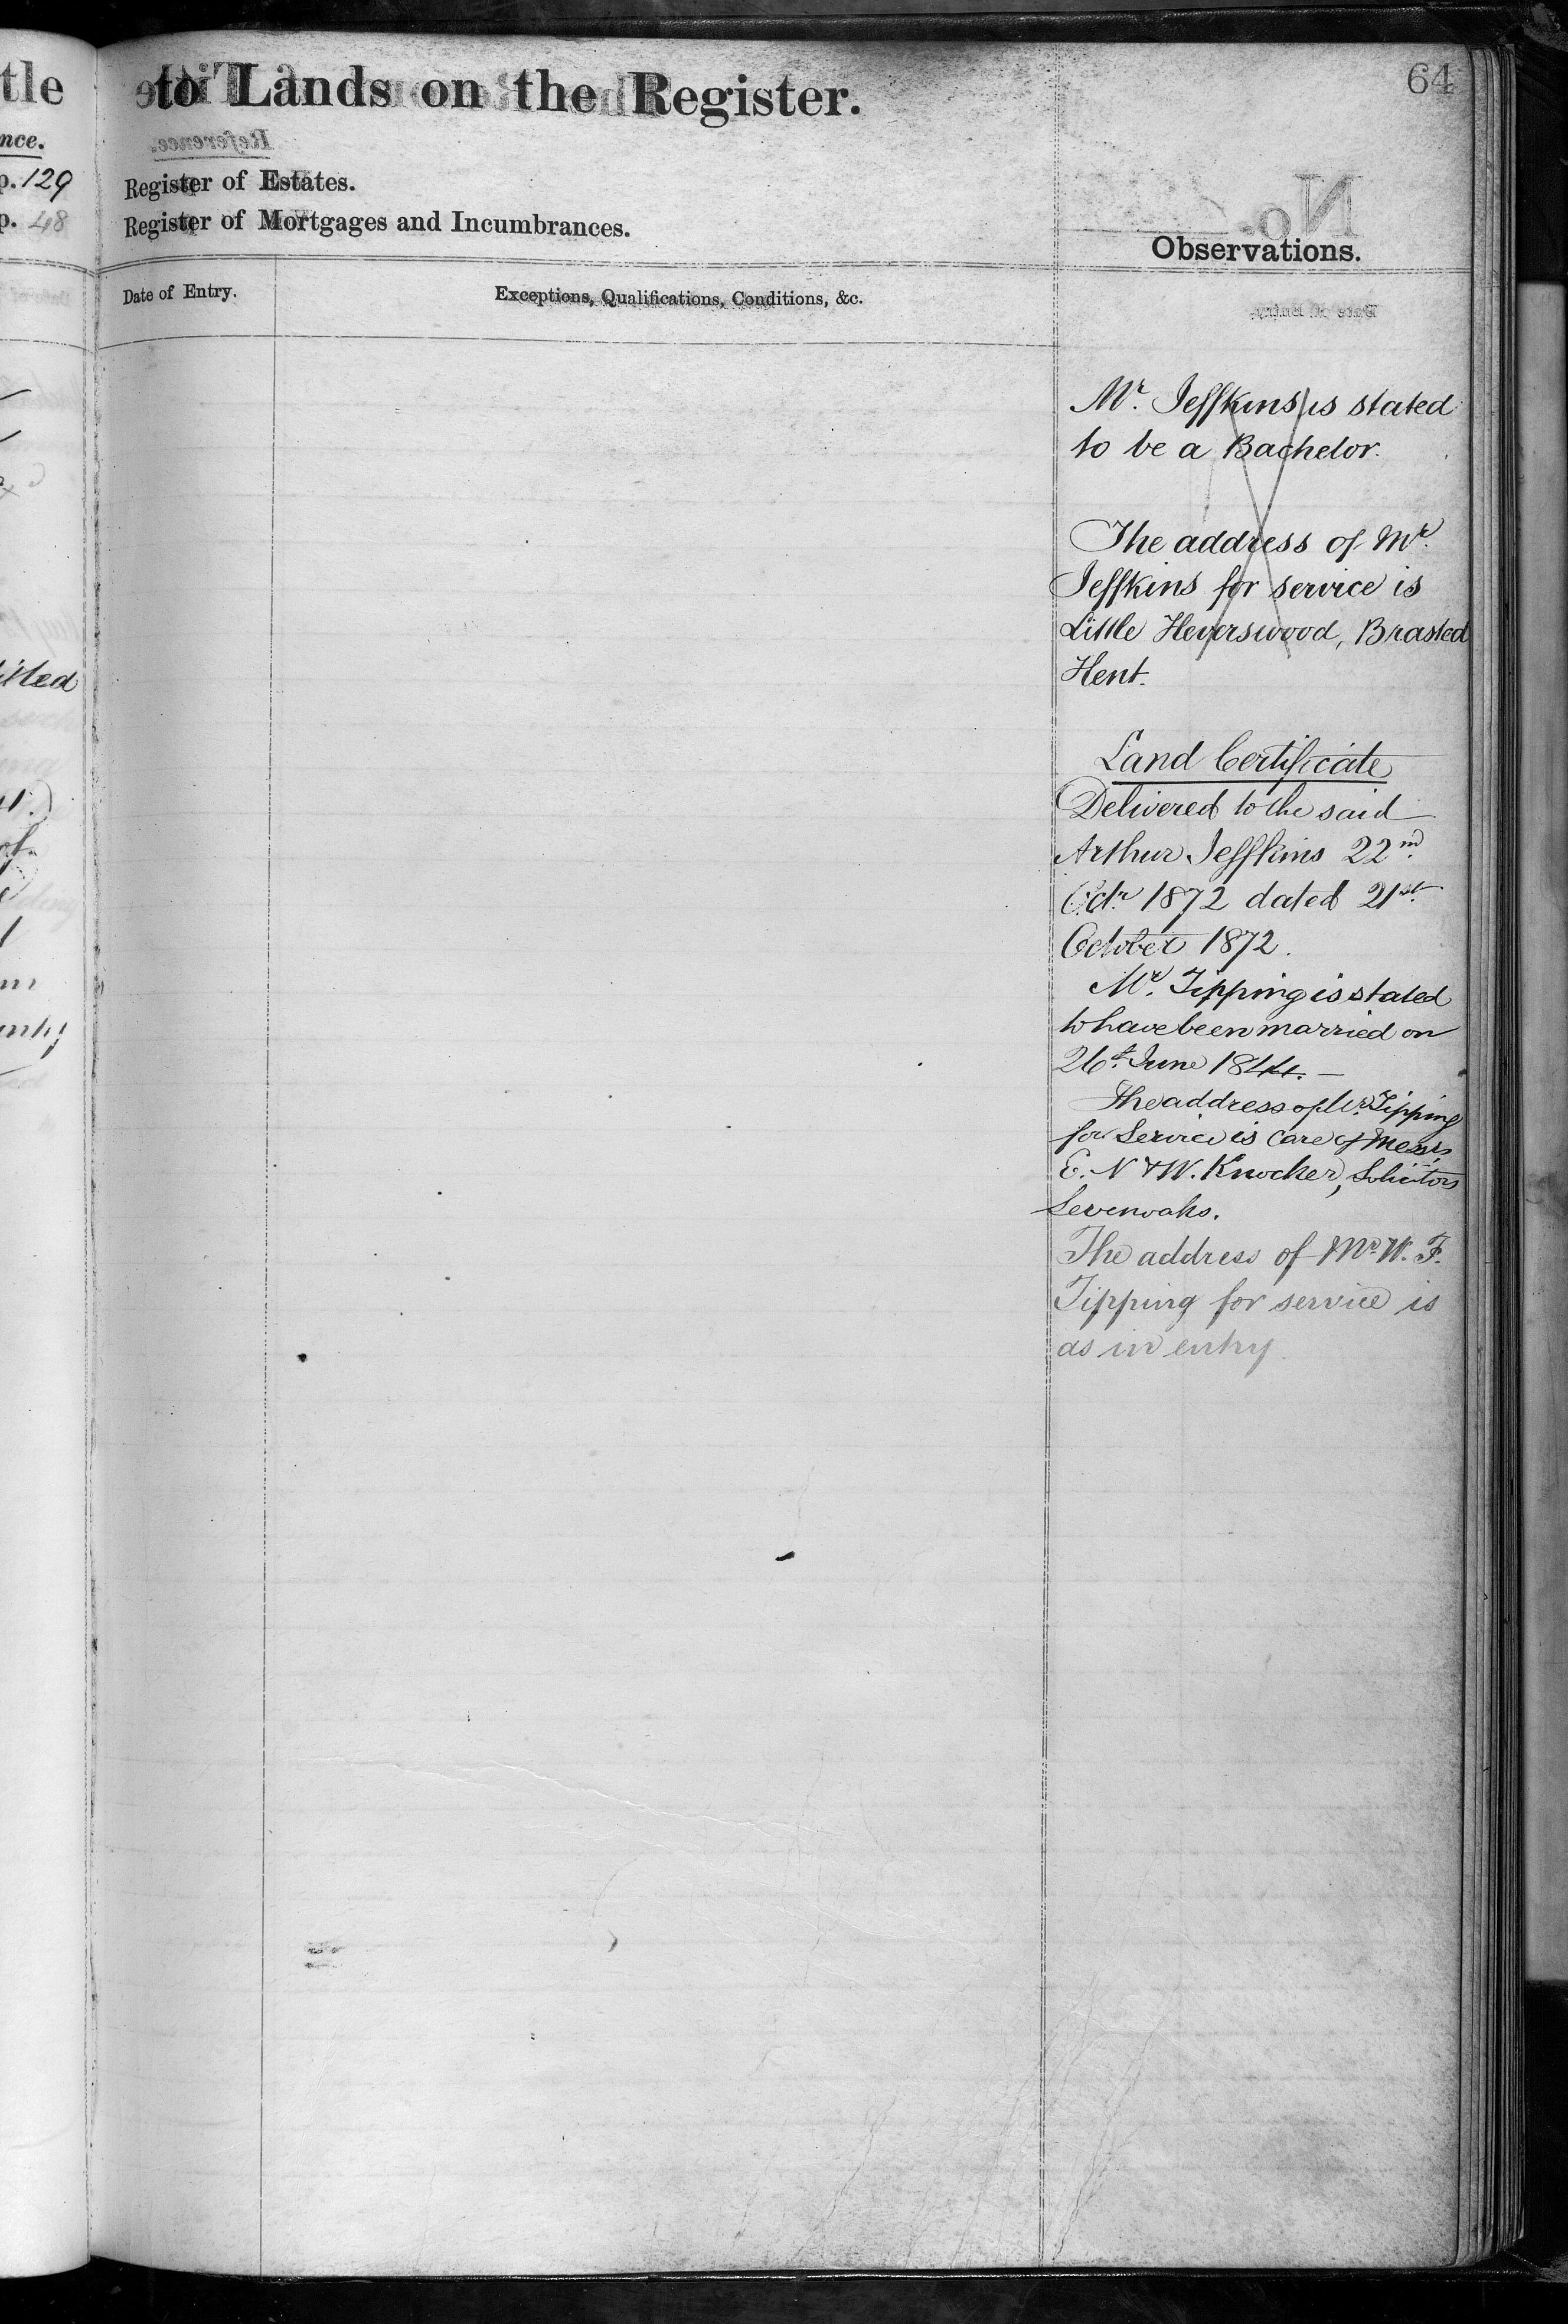 tle
nce.
p. 129
p. 48
sted
of
64
to Lands on the Register.
Register of Estates.
Register of Mortgages and Incumbrances.
Observations.
Date of Entry.
Exceptions, Qualifications, Conditions, &c.
Mr. Jeffkins is stated
to be a Bachelor.
The address of Mr.
Jeffkins for service is
Little Heverswood, Brasted
Kent.
Land Certificate
Delivered to the said
Arthur Jeffkins 22nd.
Octr. 1872 dated 21st.
October 1872.
Mr. Tipping is stated
to have been married on
26th. June 1844. —
The address of Mr. Tipping
for Service is Care of Messrs
E. N & W. Knocker, Solicitors
Sevenoaks.
The address of Mr W. F.
Tipping for service is
as in entry.